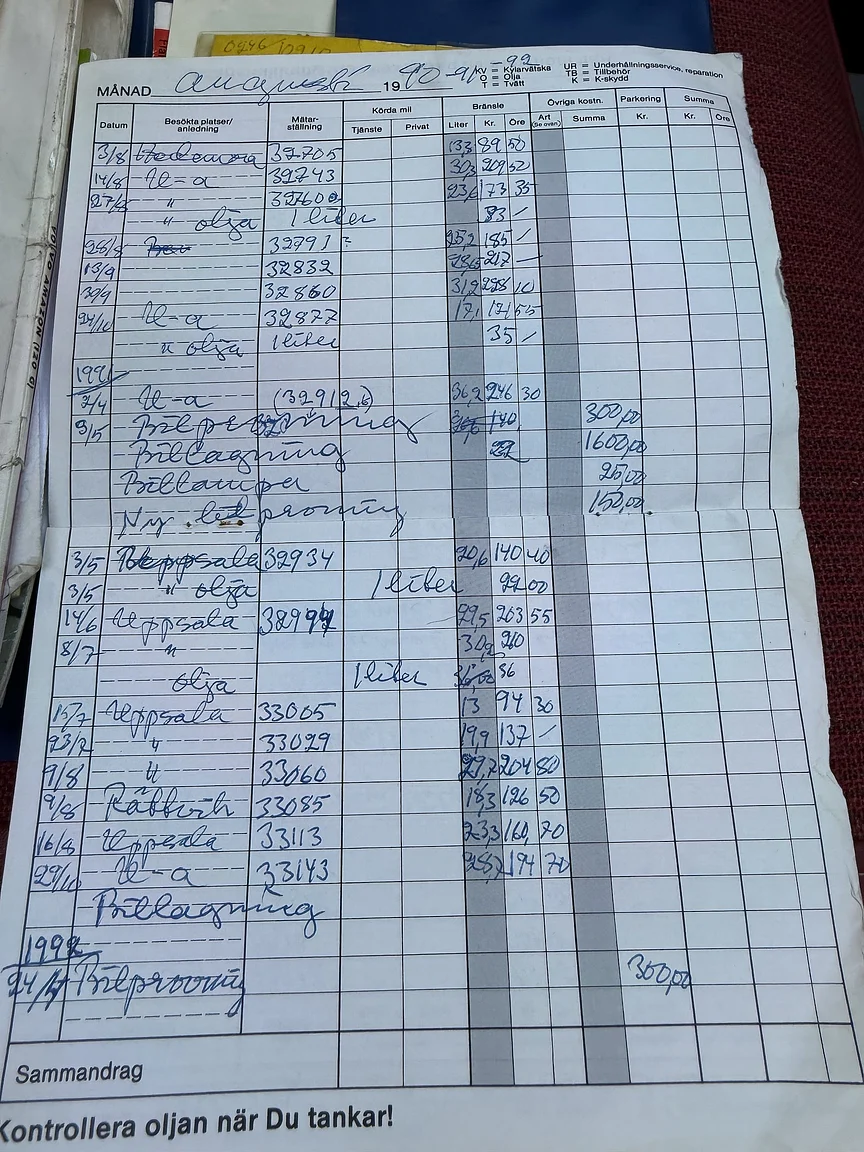 MÅNAD augusti 1990-91 -92
KV = Kylarvätska
O = Olja
T = Tvätt
UR = Underhållningsservice, reparation
TB = Tillbehör
K = K-skydd
Datum Besökta platser/anledning Mätarställning Körda mil Tjänste Privat Bränsle Liter Kr. Öre Övriga kostn. Art (Se ovan) Summa Parkering Kr. Summa Kr. Öre
3/8 32705 13,3 89 50
14/8 U-a 32743 30,3 209 50
27/8 " 32760 23,6 173 35
" olja 1 liter 83 -
28/8 32791 25,2 185 -
13/9 32832 28,5 217 -
30/9 32860 31,2 228 10
24/10 U-a 32877 17,1 121 55
" olja 1 liter 35 -
1991
2/4 U-a (32912,6) 36,2 246 30
3/5 Bilprovning 140 300,00
Billagning 22 1600,00
Billampa 25,00
Ny bilprovning 150,00
3/5 Uppsala 32934 20,6 140 40
3/5 " olja 1 liter 22 00
14/6 Uppsala 32994 29,5 203 55
8/7 " 30,2
olja 1 liter 36
15/7 Uppsala 33005 13 94 30
23/7 " 33029 19,9 137 -
9/8 " 33060 29,7 204 80
9/8 Rättvik 33085 18,3 126 50
16/8 Uppsala 33113 23,3 160, 70
29/10 U-a 33143 28,2 194 70
Billagning
1992
24/4 Bilprovning 300,00
Sammandrag
Kontrollera oljan när Du tankar!